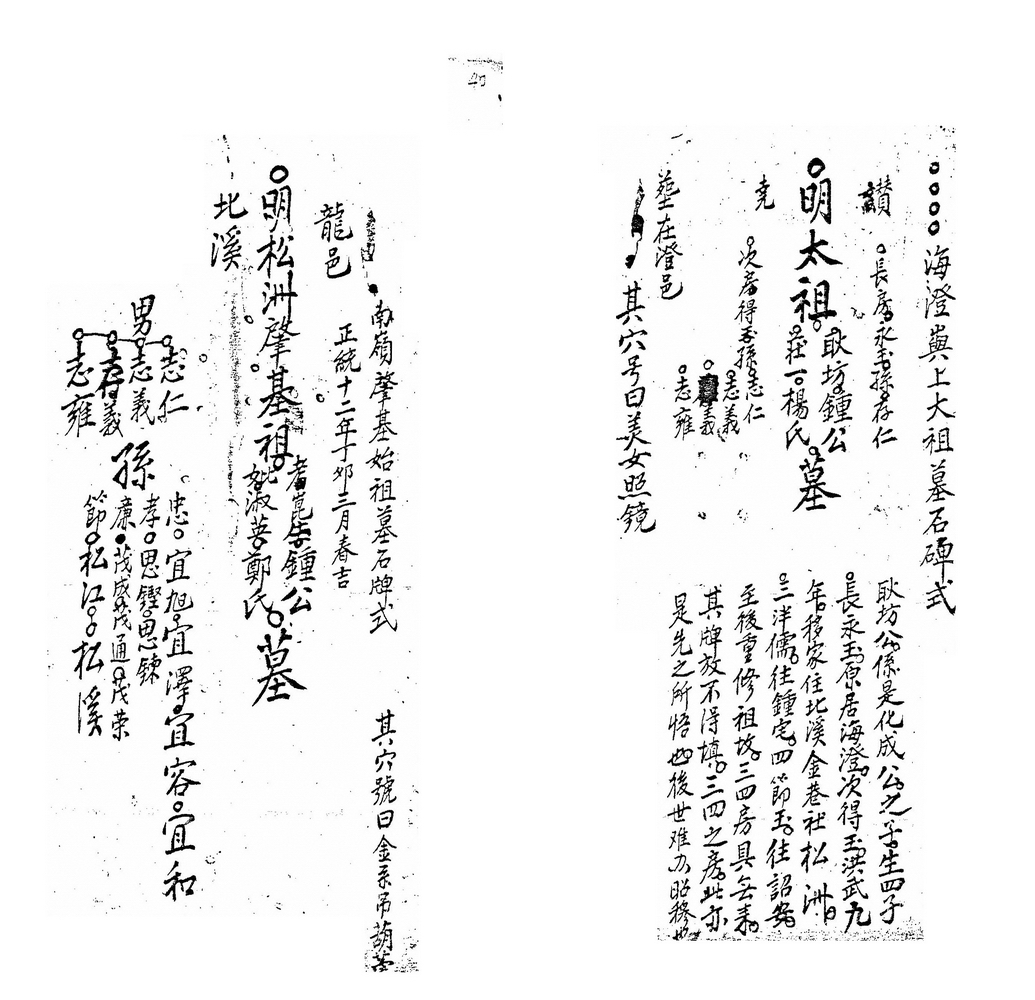 海澄與上大祖墓石碑式
讃
長房永玉孫存仁
明太祖
耿坊鍾公
莊一楊氏
墓
尭
次房得玉孫
志仁
志義
義
志雍
塟在澄邑
其穴号曰美女照鏡
耿坊公係是化成公之子生四子
長永玉原居海澄次得玉洪武九
年移家住北溪金巷社松洲
三泮儒往鍾宅四節玉往詔安
至後重修祖坟三四房具無来
其牌放不得填三四之房此亦
是先之所悟也後世难办昭穆也
40
南嶺肇基始祖墓石牌式
其穴號曰金系吊葫芦
龍邑
正統十二年丁夘三月春吉
明松洲肇基祖
鍾公
妣淑英鄭氏
墓
北溪
男
志仁
志義
存義
志雍
孫
忠宜旭宜澤宜容宜和
孝思鏗思鍊
廉茂盛茂通茂荣
節松江松溪